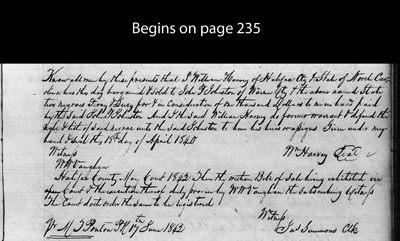 Begins on page 235
Know all men by these presents that I William Harvey of Halifax Cty & State of North Car
olina has this day bargained & sold to John P Johnston of Warren Cty & the above named State
two negroes Frony & Bucy for & in Consideration of one thousand Dollars to me in hand paid
by the Said John P Johnston And I the Said William Harvey do forever warrant & defend the
right & title of Said negroes unto the Said Johnston to him his heirs or assigns Given under my
hand & Seal this 15th day of April 1840
Witness Wm Harvey Seal
W H Vaughan
Halifax County May Court 1842 Then the within Bill of Sale being exhibited in
open Court & the execution thereof duly proven by W H Vaughan the Subscribing Witness
The Court doth order the same to be registered
Witness
Wr M. T. Ponton P.R. 17th June 1842 Jas Simmons Clk